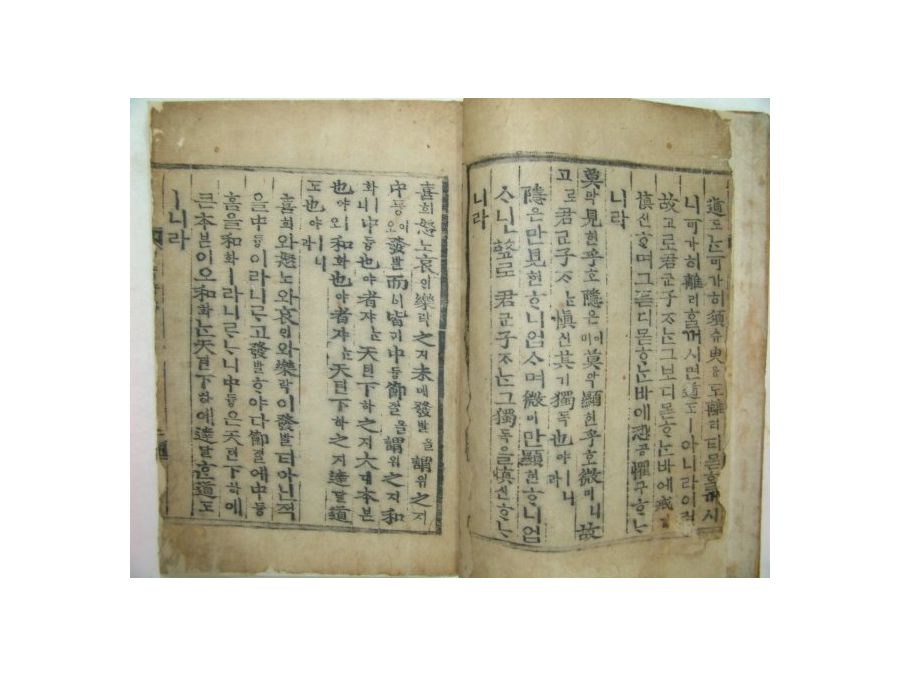 道도ᄂᆞᆫ可가히須슈臾유도離리티몯ᄒᆞᆯ꺼시
니可가히離리ᄒᆞᆯ꺼시면道도ㅣ아니라이런
故고로君군子ᄌᆞᄂᆞᆫ그보디몯ᄒᆞᄂᆞᆫ바에戒계
愼신ᄒᆞ며그듣디몯ᄒᆞᄂᆞᆫ바에恐공懼구ᄒᆞᄂᆞ
니라
莫막見현乎호隱은이며莫막顯현乎호微미니故
고로君군子ᄌᆞᄂᆞᆫ愼신其기獨독也야ㅣ니라
隱은만見현ᄒᆞ니업스며微미만顯현ᄒᆞ니업
스니故고로君군子ᄌᆞᄂᆞᆫ그獨독을愼신ᄒᆞᄂᆞ
니라
喜희怒노哀ᄋᆡ樂락之지未미發발을謂위之지
中듕이오發발而이皆ᄀᆡ中듕節졀을謂위之지和
화ㅣ니中듕也야者쟈ᄂᆞᆫ天텬下하之지大대本본
也야ㅣ오和화也야者쟈ᄂᆞᆫ天텬下하之지達달道
도也야ㅣ니라
喜희와怒노와哀ᄋᆡ와樂락이發발티아닌적
을中듕이라니ᄅᆞ고發발ᄒᆞ야다節졀에中듕
홈을和화ㅣ라니ᄅᆞᄂᆞ니中듕은天텬下하에
큰本본이오和화ᄂᆞᆫ天텬下하애達달ᄒᆞᆫ道도
ㅣ니라